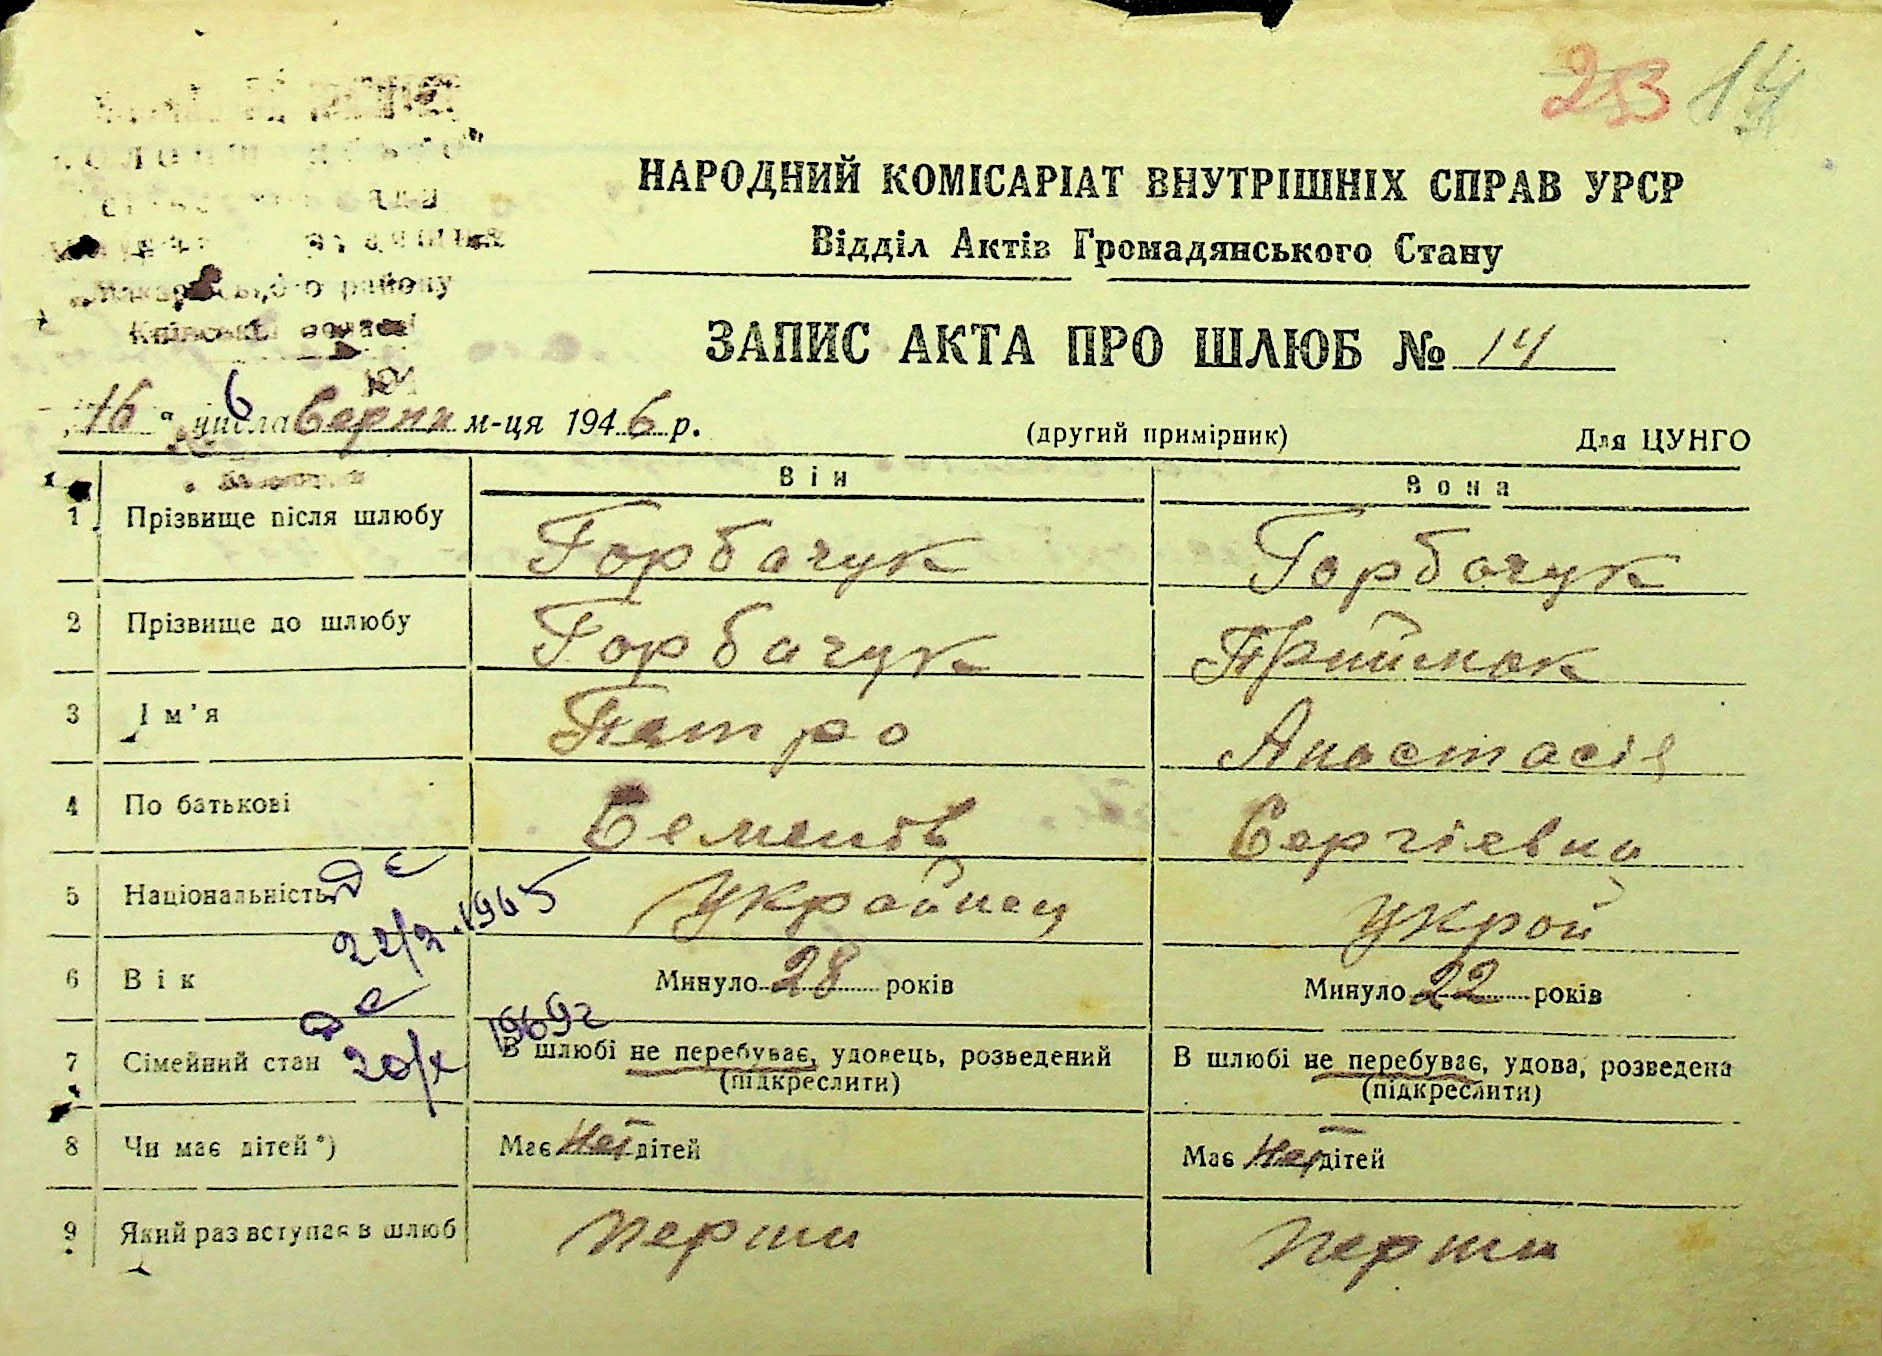 253 14
НАРОДНИЙ КОМІСАРІАТ ВНУТРІШНІХ СПРАВ УРСР
Відділ Актів Громадянського Стану
району
ЗАПИС АКТА ПРО ШЛЮБ № 14
"16" числа Серпн м-ця 1946 р.
(другий примірник) Для ЦУНГО
Він Вона
1 Прізвище після шлюбу Горбачук Горбачук
2 Прізвище до шлюбу Горбачук Приймак
3 Ім'я Петро Анастасія
4 По батькові Семенів Сергіевна
5 Національність Украйнец Украй
22/2.1965
6 Вік Минуло 28 років Минуло 22 років
1969г
7 Сімейний стан 20/X В шлюбі не перебуває, удовець, розведений В шлюбі не перебуває, удова, розведена
(підкреслити) (підкреслити)
8 Чи має дітей*) Має Неї дітей Має Неї дітей
9 Який раз вступає в шлюб перши перши